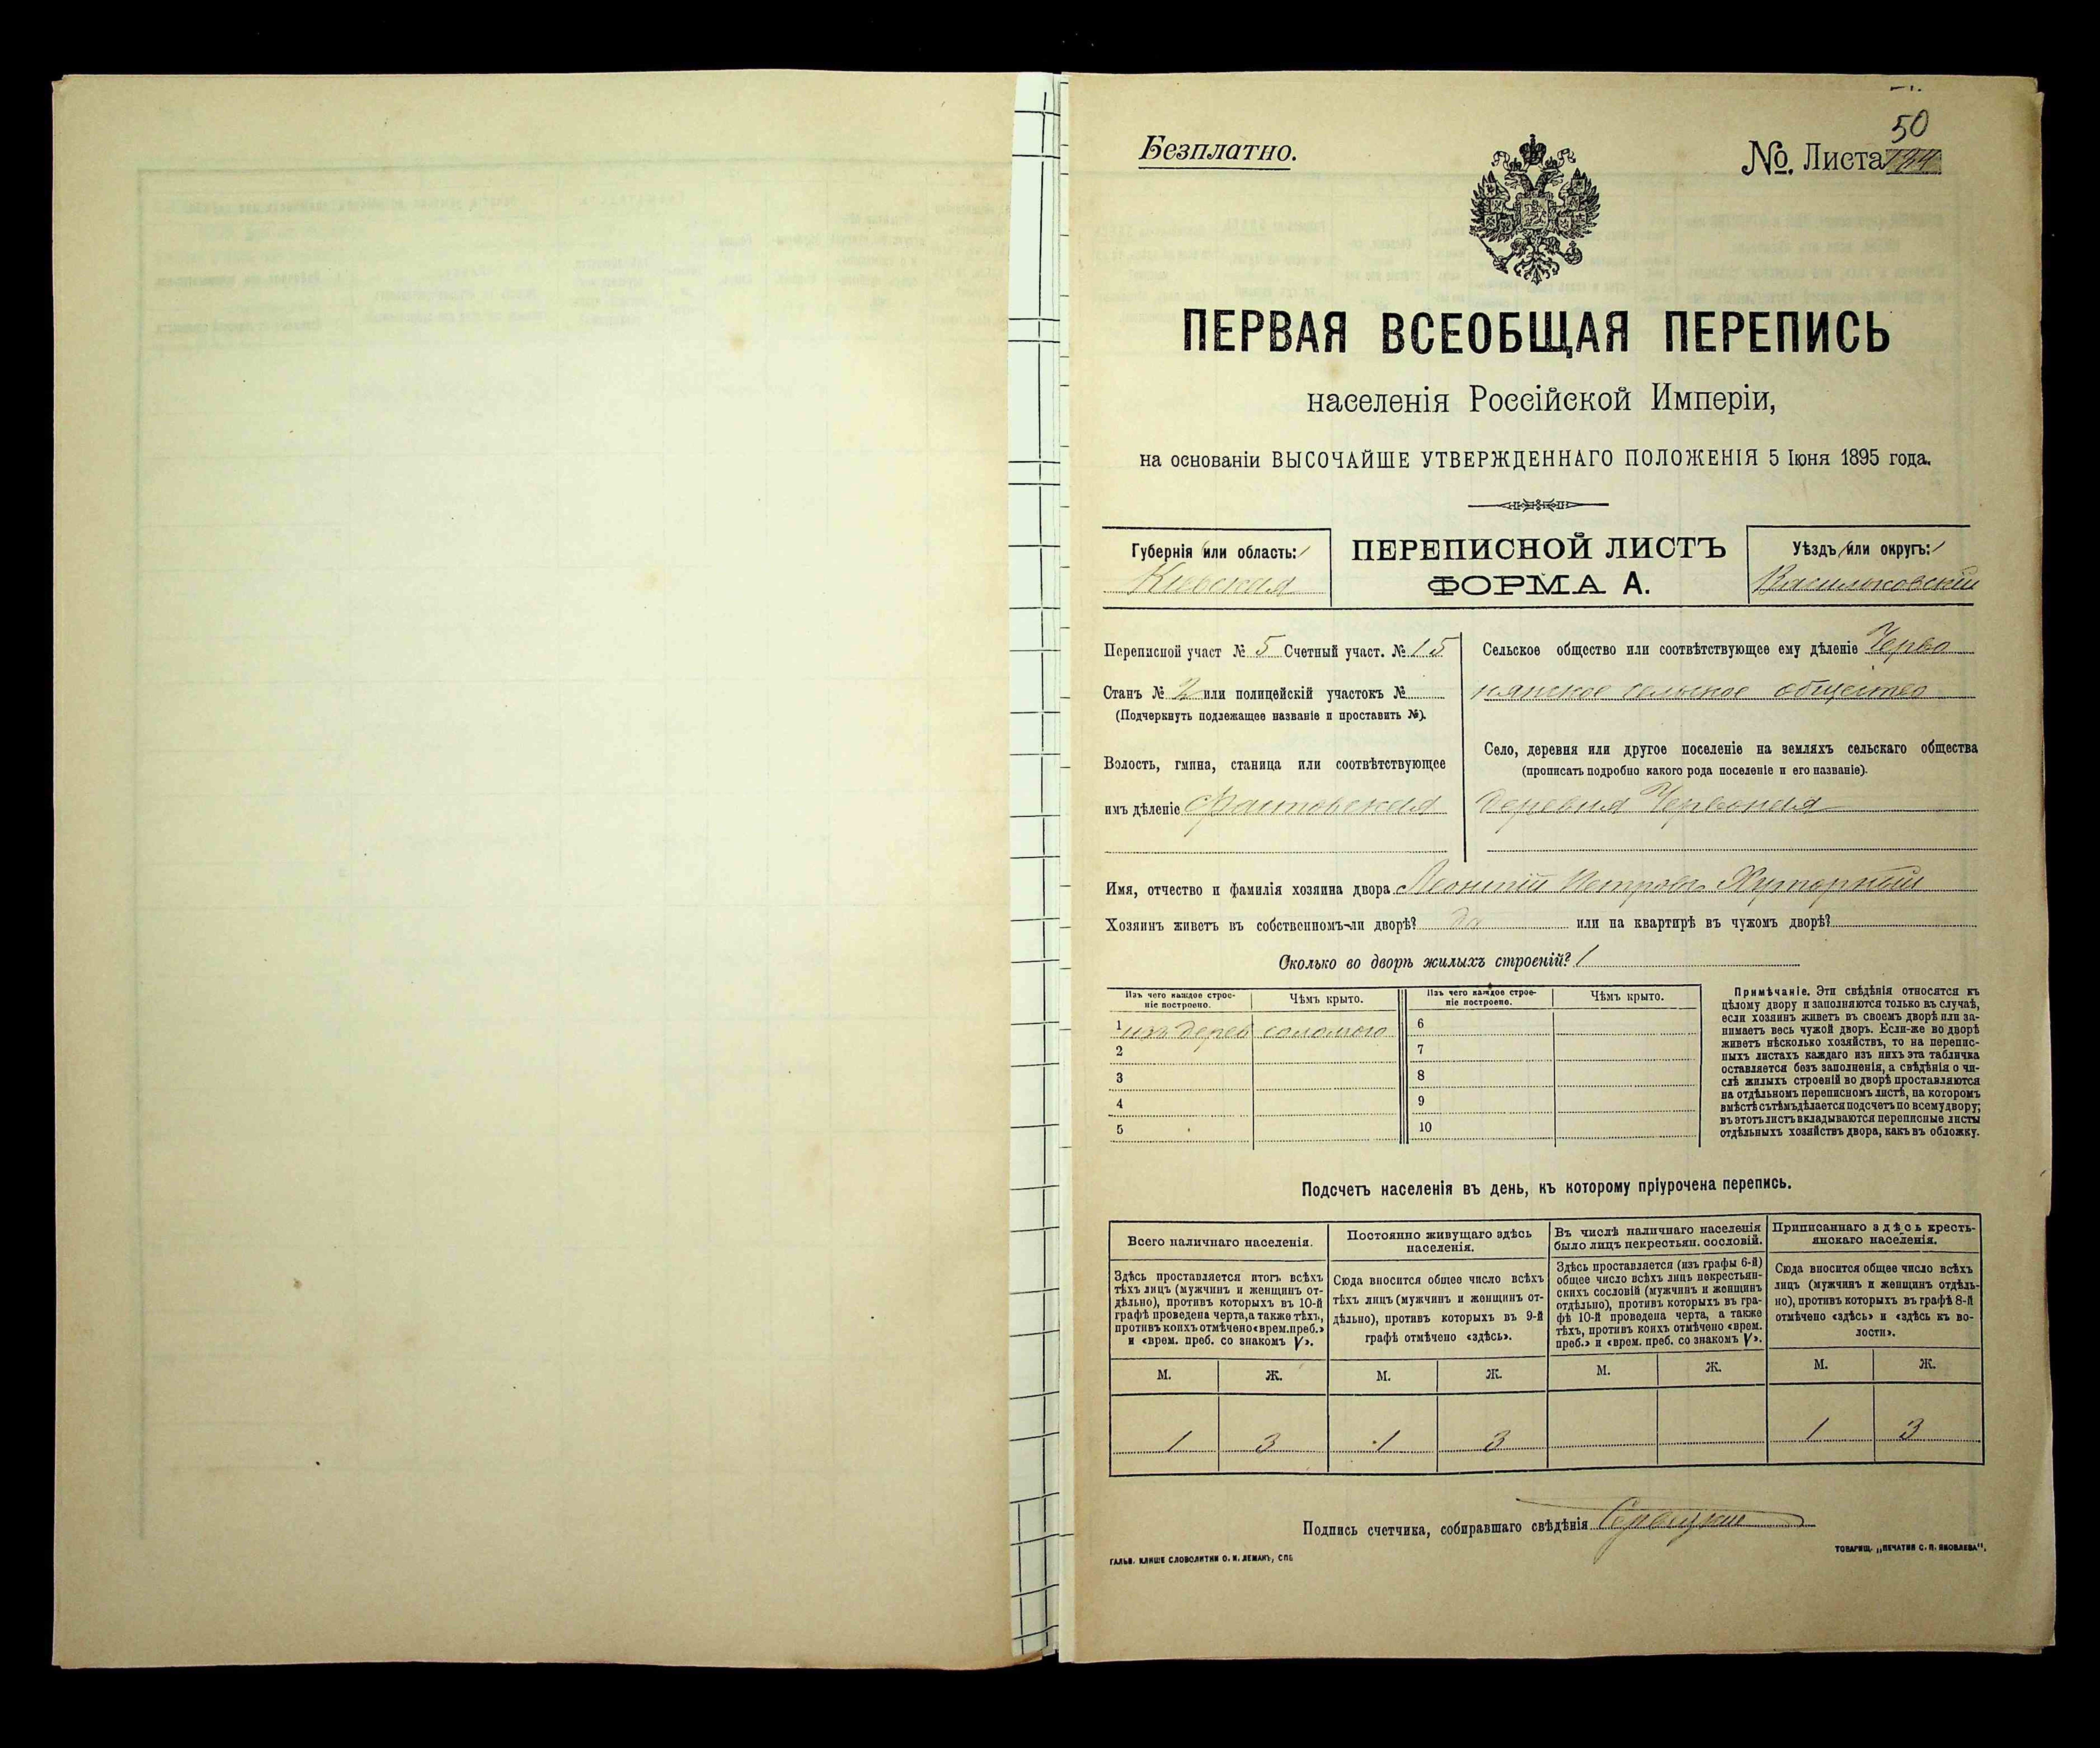 50
Безплатно.
№. Листа
ПЕРВАЯ ВСЕОБЩАЯ ПЕРЕПИСЬ
населенія Россійской Имперіи,
на основаніи ВЫСОЧАЙШЕ УТВЕРЖДЕННАГО ПОЛОЖЕНІЯ 5 Іюня 1895 года.
Губернія или область:
Кіевская
ПЕРЕПИСНОЙ ЛИСТЪ
ФОРМА А.
Уѣздъ или округъ:
Васильковскій
Переписной участ № 5 Счетный участ. № 15
Станъ № 2 или полицейскій участокъ №
(Подчеркнуть подлежащее названіе и проставить №).
Волость, гмина, станица или соотвѣтствующее
имъ дѣленіе Фастовская
Сельское общество или соотвѣтствующее ему дѣленіе Черво
нянское сельское общество
Село, деревня или другое поселеніе на земляхъ сельскаго общества
(прописать подробно какого рода поселеніе и его названіе).
деревня Червоная
Имя, отчество и фамилія хозяина двора Леонтій Петровъ Хуторный
Хозяинъ живетъ въ собственномъ-ли дворѣ? да или на квартирѣ въ чужомъ дворѣ?
Сколько во дворѣ жилыхъ строеній? 1
Изъ чего каждое строе-
ніе построено.
Чѣмъ крыто.
1 изъ дерев соломою
2
3
4
5
Изъ чего каждое строе-
ніе построено.
Чѣмъ крыто.
6
7
8
9
10
Примѣчаніе. Эти свѣдѣнія относятся къ
цѣлому двору и заполняются только въ случаѣ,
если хозяинъ живетъ въ своемъ дворѣ или за-
нимаетъ весь чужой дворъ. Если-же во дворѣ
живетъ нѣсколько хозяйствъ, то на перепис-
ныхъ листахъ каждаго изъ нихъ эта табличка
оставляется безъ заполненія, а свѣдѣнія о чи-
слѣ жилыхъ строеній во дворѣ проставляются
на отдѣльномъ переписномъ листѣ, на которомъ
вмѣстѣ съ тѣмъ дѣлается подсчетъ по всему двору;
въ этотъ листъ вкладываются переписные листы
отдѣльныхъ хозяйствъ двора, какъ въ обложку.
Подсчетъ населенія въ день, къ которому пріурочена перепись.
Всего наличнаго населенія.
Здѣсь проставляется итогъ всѣхъ
тѣхъ лицъ (мужчинъ и женщинъ от-
дѣльно), противъ которыхъ въ 10-й
графѣ проведена черта, а также тѣхъ,
противъ коихъ отмѣчено «врем. преб.»
и «врем. преб. со знакомъ V».
М. Ж.
1 3
Постоянно живущаго здѣсь
населенія.
Сюда вносится общее число всѣхъ
тѣхъ лицъ (мужчинъ и женщинъ от-
дѣльно), противъ которыхъ въ 9-й
графѣ отмѣчено «здѣсь».
М. Ж.
1 3
Въ числѣ наличнаго населенія
было лицъ некрестьян. сословій.
Здѣсь проставляется (изъ графы 6-й)
общее число всѣхъ лицъ некрестьян-
скихъ сословій (мужчинъ и женщинъ
отдѣльно), противъ которыхъ въ гра-
фѣ 10-й проведена черта, а также
тѣхъ, противъ коихъ отмѣчено «врем.
преб.» и «врем. преб. со знакомъ V».
М. Ж.
Приписаннаго здѣсь кресть-
янскаго населенія.
Сюда вносится общее число всѣхъ
лицъ (мужчинъ и женщинъ отдѣль-
но), противъ которыхъ въ графѣ 8-й
отмѣчено «здѣсь» и «здѣсь къ во-
лости».
М. Ж.
1 3
Подпись счетчика, собиравшаго свѣдѣнія
ГАЛЬВ. КЛИШЕ СЛОВОЛИТНИ О. И. ЛЕМАНЪ, СПБ
ТОВАРИЩ. „ПЕЧАТНЯ С. П. ЯКОВЛЕВА".